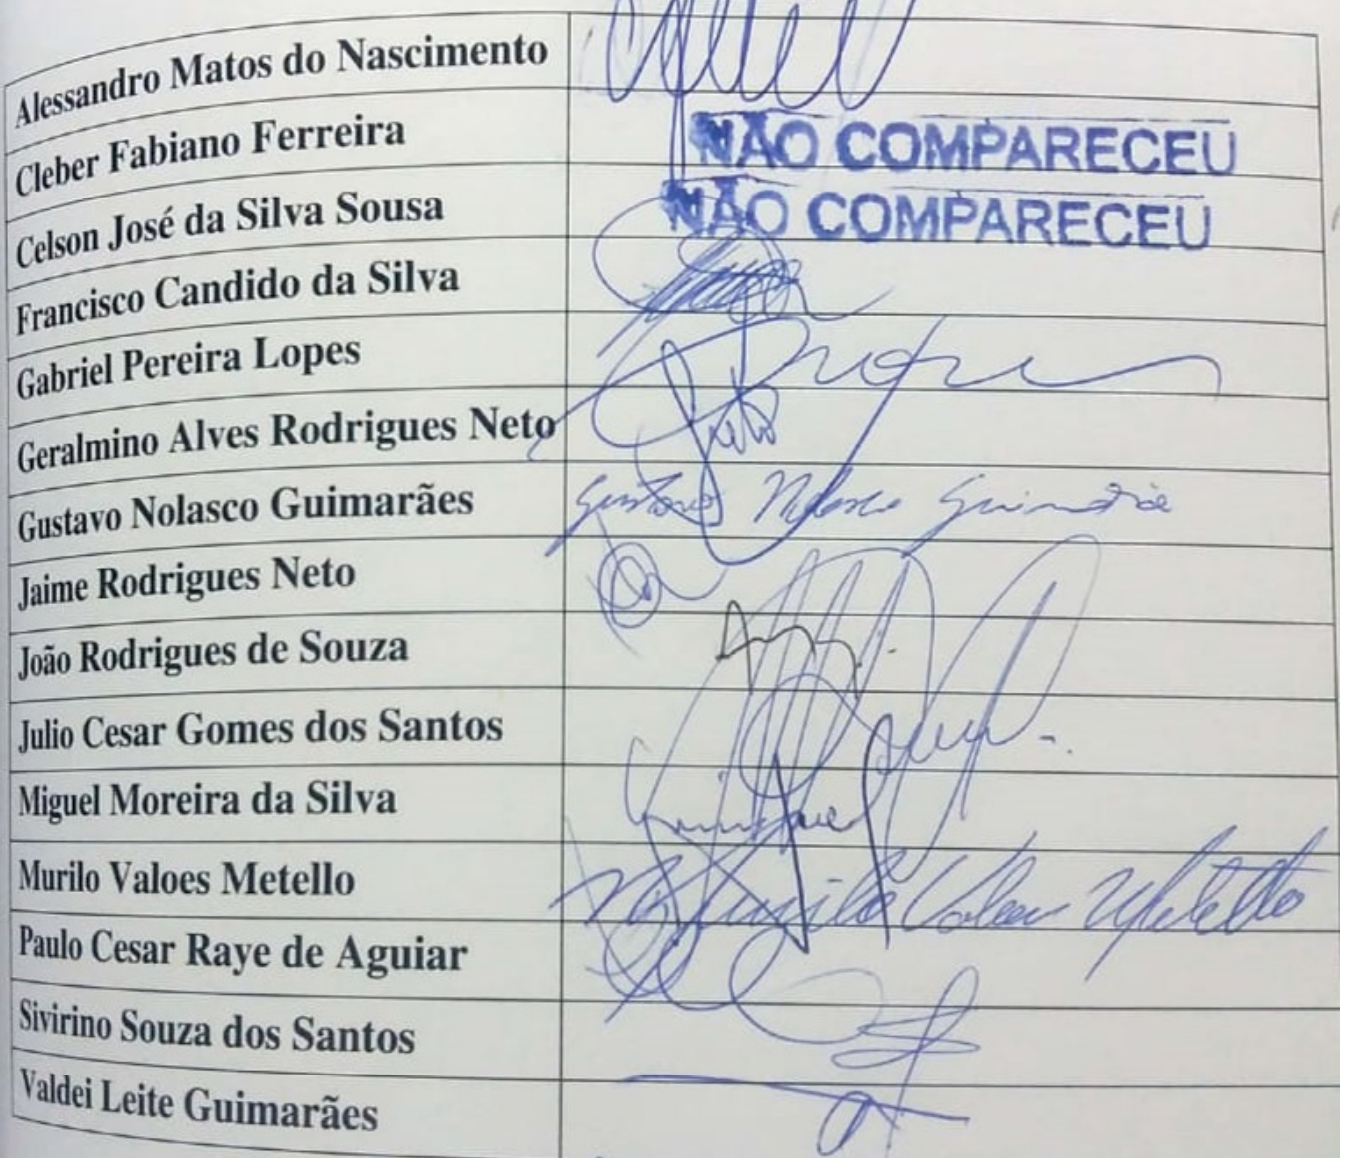 Alessandro Matos do Nascimento
Cleber Fabiano Ferreira NÃO COMPARECEU
Celson José da Silva Sousa NÃO COMPARECEU
Francisco Candido da Silva
Gabriel Pereira Lopes
Geralmino Alves Rodrigues Neto
Gustavo Nolasco Guimarães Gustavo Nolasco Guimarães
Jaime Rodrigues Neto
João Rodrigues de Souza
Julio Cesar Gomes dos Santos
Miguel Moreira da Silva
Murilo Valoes Metello Murilo Valoes Metello
Paulo Cesar Raye de Aguiar
Sivirino Souza dos Santos
Valdei Leite Guimarães